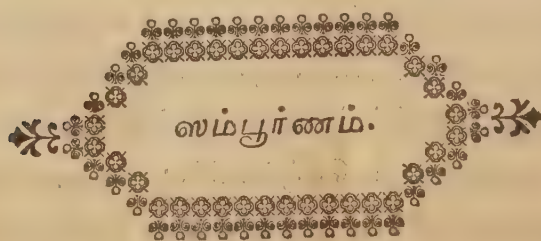 ஸம்பூர்ணம்.